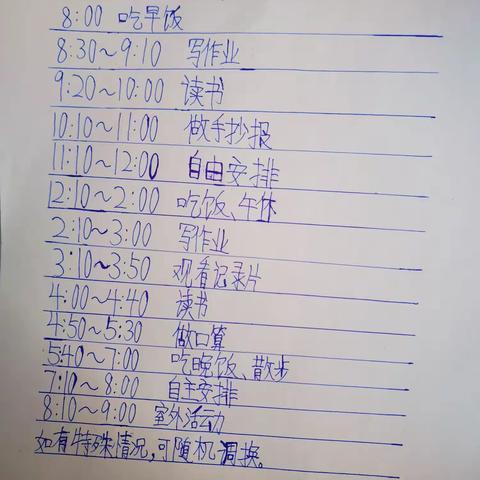 8:00 吃早饭
8:30～9:10 写作业
9:20～10:00 读书
10:10～11:00 做手抄报
11:10～12:00 自由安排
12:10～2:00 吃饭、午休
2:10～3:00 写作业
3:10～3:50 观看记录片
4:00～4:40 读书
4:50～5:30 做口算
5:40～7:00 吃晚饭、散步
7:10～8:00 自主安排
8:10～9:00 室外活动
如有特殊情况,可随机调换。